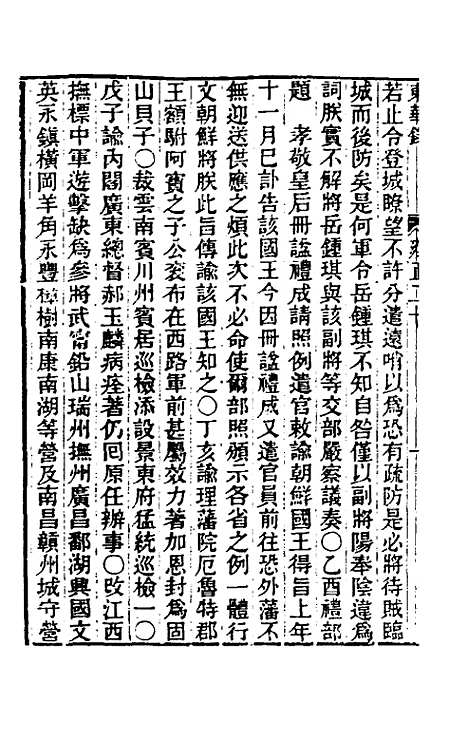 東華錄
若止令登城瞭望不許分遣遠哨以爲恐有疏防是必將待賊臨
城而後防矣是何軍令岳鍾琪不知自咎僅以副將陽奉陰違爲
詞朕實不解將岳鍾琪與該副將等交部嚴察議奏〇乙酉禮部
題　孝敬皇后冊諡禮成請照例遣官敕諭朝鮮國王得旨上年
十一月已訃告該國王今因冊諡禮成又遣官員前往恐外藩不
無迎送供應之煩此次不必命使爾部照頒示各省之例一體行
文朝鮮將朕此旨傳諭該國王知之〇丁亥諭理藩院厄魯特郡
王額駙阿寶之子公袞布在西路軍前甚屬效力著加恩封爲固
山貝子〇裁雲南賓川州賓居巡檢添設景東府猛統巡檢一〇
戊子諭內閣廣東總督郝玉麟病痊著仍回原任辦事〇改江西
撫標中軍遊擊缺爲參將武甯鉛山瑞州撫州廣昌鄱湖興國文
英永鎮橫岡羊角永豐樟樹南康南湖等營及南昌贛州城守營